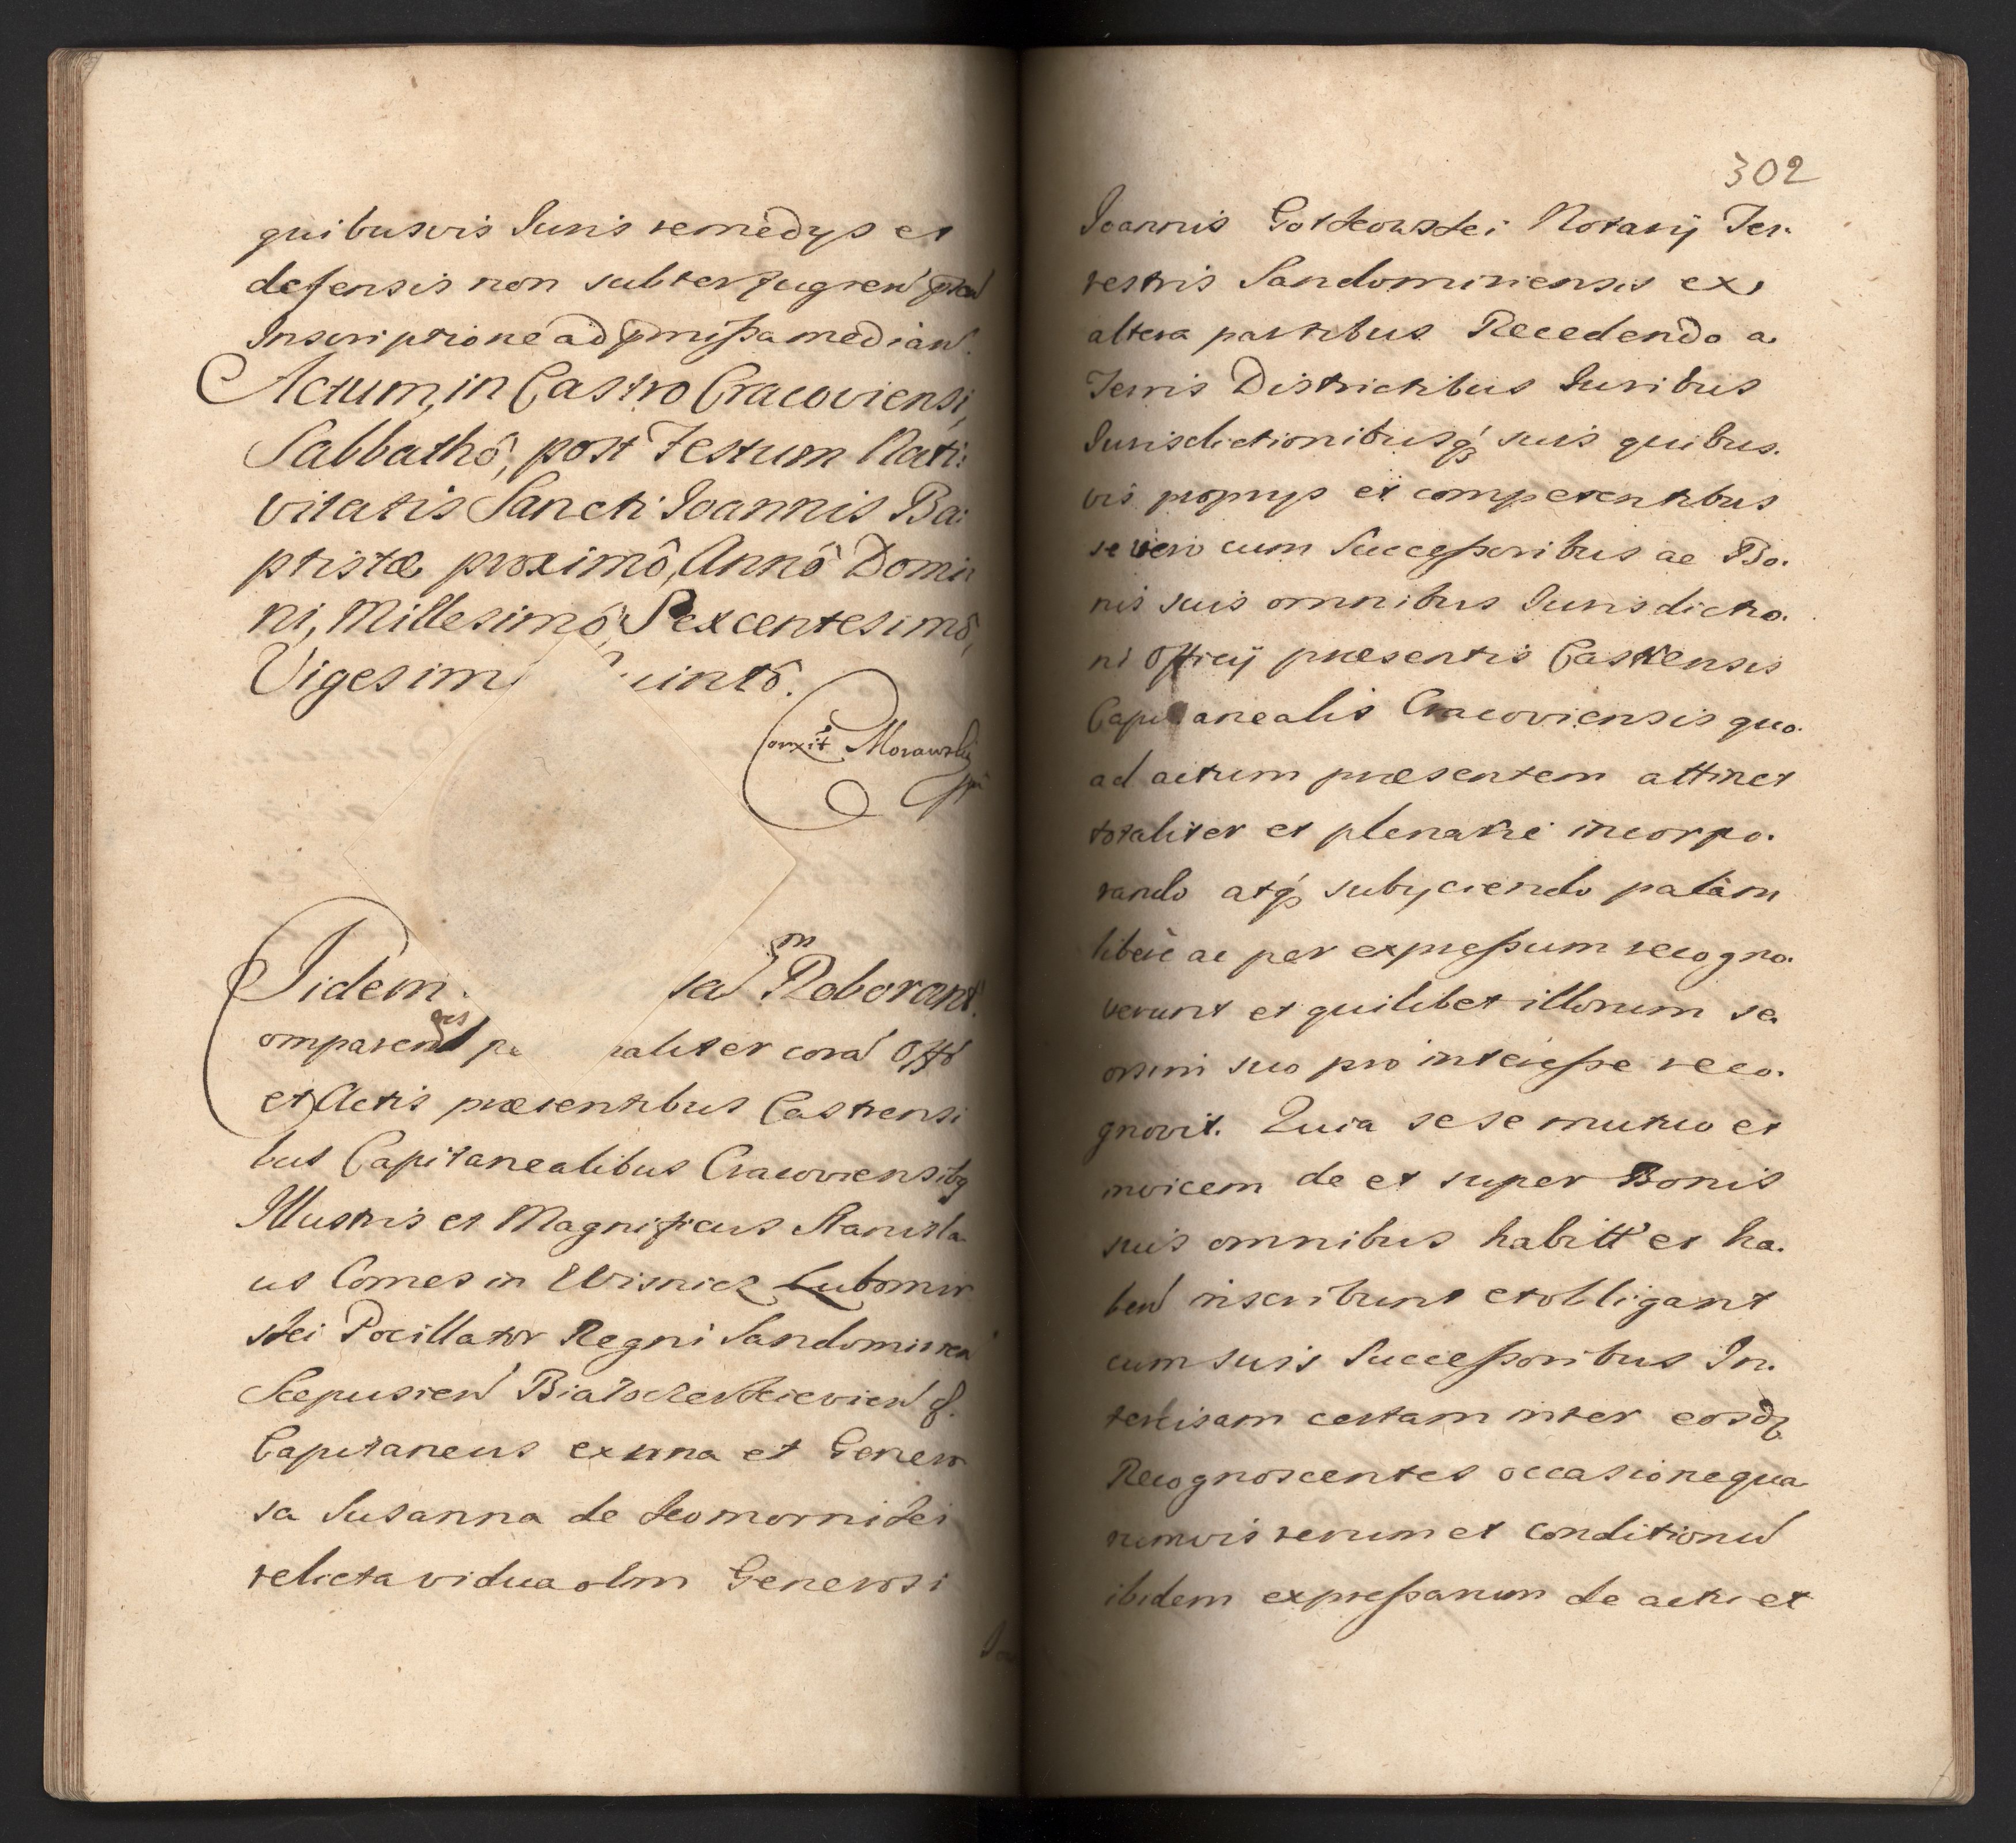 quibusvis Iuris remedys et
defensis non subterfugien
Inscriptione ad pmissa median
Actum, in Castro Cracoviensi,
Sabbathô, post Festum Nati:
vitatis Sancti Ioannis Ba:
ptistæ proximô, Annô Domi
ni, Millesimô, Sexcentesimô,
Vigesim uintô.
Corrxit Morawsky
Iidem sa Roborant
omparen aliter cora Offo
et Actis præsentibus Castrensi
bus Capitanealibus Cracoviensibq
Illustris et Magnificus Stanisla
us Comes in Wisnicz Lubomir
ski Pocillator Regni Sandomirien
Scepusien Białocerkievien
Capitaneus ex una et Genero
sa Susanna de Komornikei
relicta vidua olim Generosi
302
Ioannis Gotkowskei Notarij Ter.
restris Sandomiriensis ex
altera partibus Recedendo a
Terris Districtibus Iuribus
Iurisdictionibusq suis quibus.
vis proprys et competentibus
se vero cum Successoribus ac Bo.
nis suis omnibus Iurisdictio.
ni Officij præsentis Castrensis
Capitanealis Cracoviensis quo.
ad actum præsentem attinet
totaliter et plenarie incorpo.
rando atq subyciendo palam
libere ac per expressum recogno.
verunt et quilibet illorum se
orsim suo pro interesse reco.
gnovit. Quia sese mutuo et
invicem de et super Bonis
suis omnibus habitt et ha.
ben inscribunt et obligant
cum suis Successoribus In.
tercisam certam inter eosdq
Recognoscentes occasione qua
rumvis rerum et conditionu
ibidem expressarum de actu et